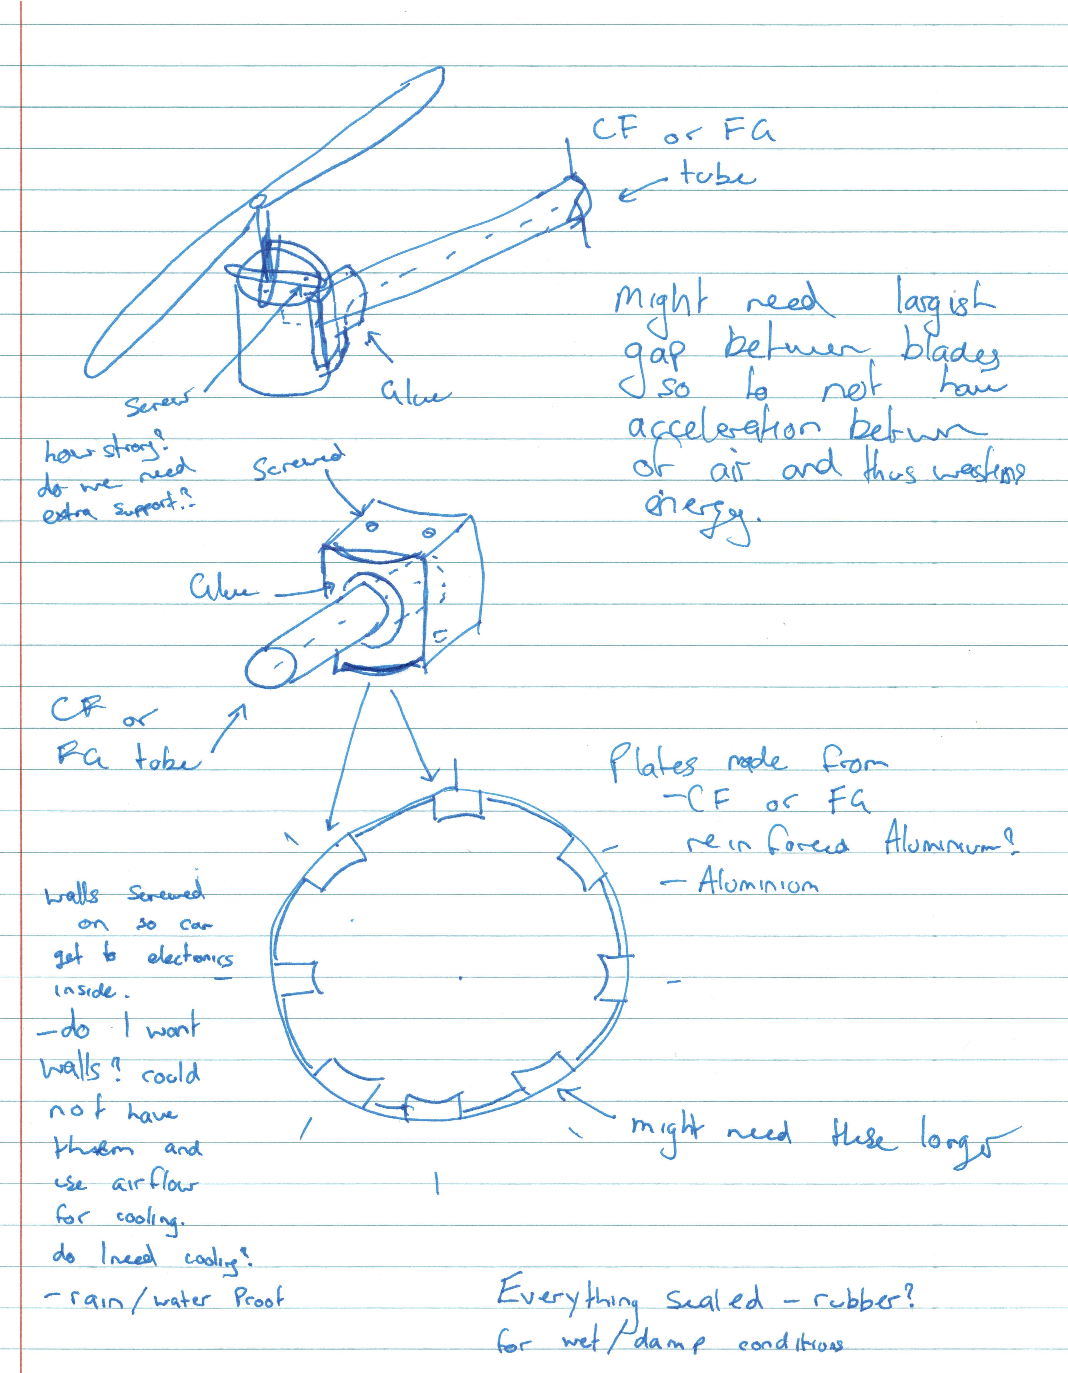 CF or FG
tube
Might need largish
gap between blades
so to not have
acceleration between
of air and thus wasting
energy.
Screw
Glue
how strong?
do we need
extra support?
Screwed
Glue
CF or
FG tube
Plates made from
- CF or FG
reinforced Aluminium?
- Aluminium
walls screwed
on so can
get to electonics
inside.
- do I want
walls? could
not have
them and
use airflow
for cooling.
do I need cooling?
- rain/water Proof
might need these longer
Everything sealed - rubber?
for wet/damp conditions